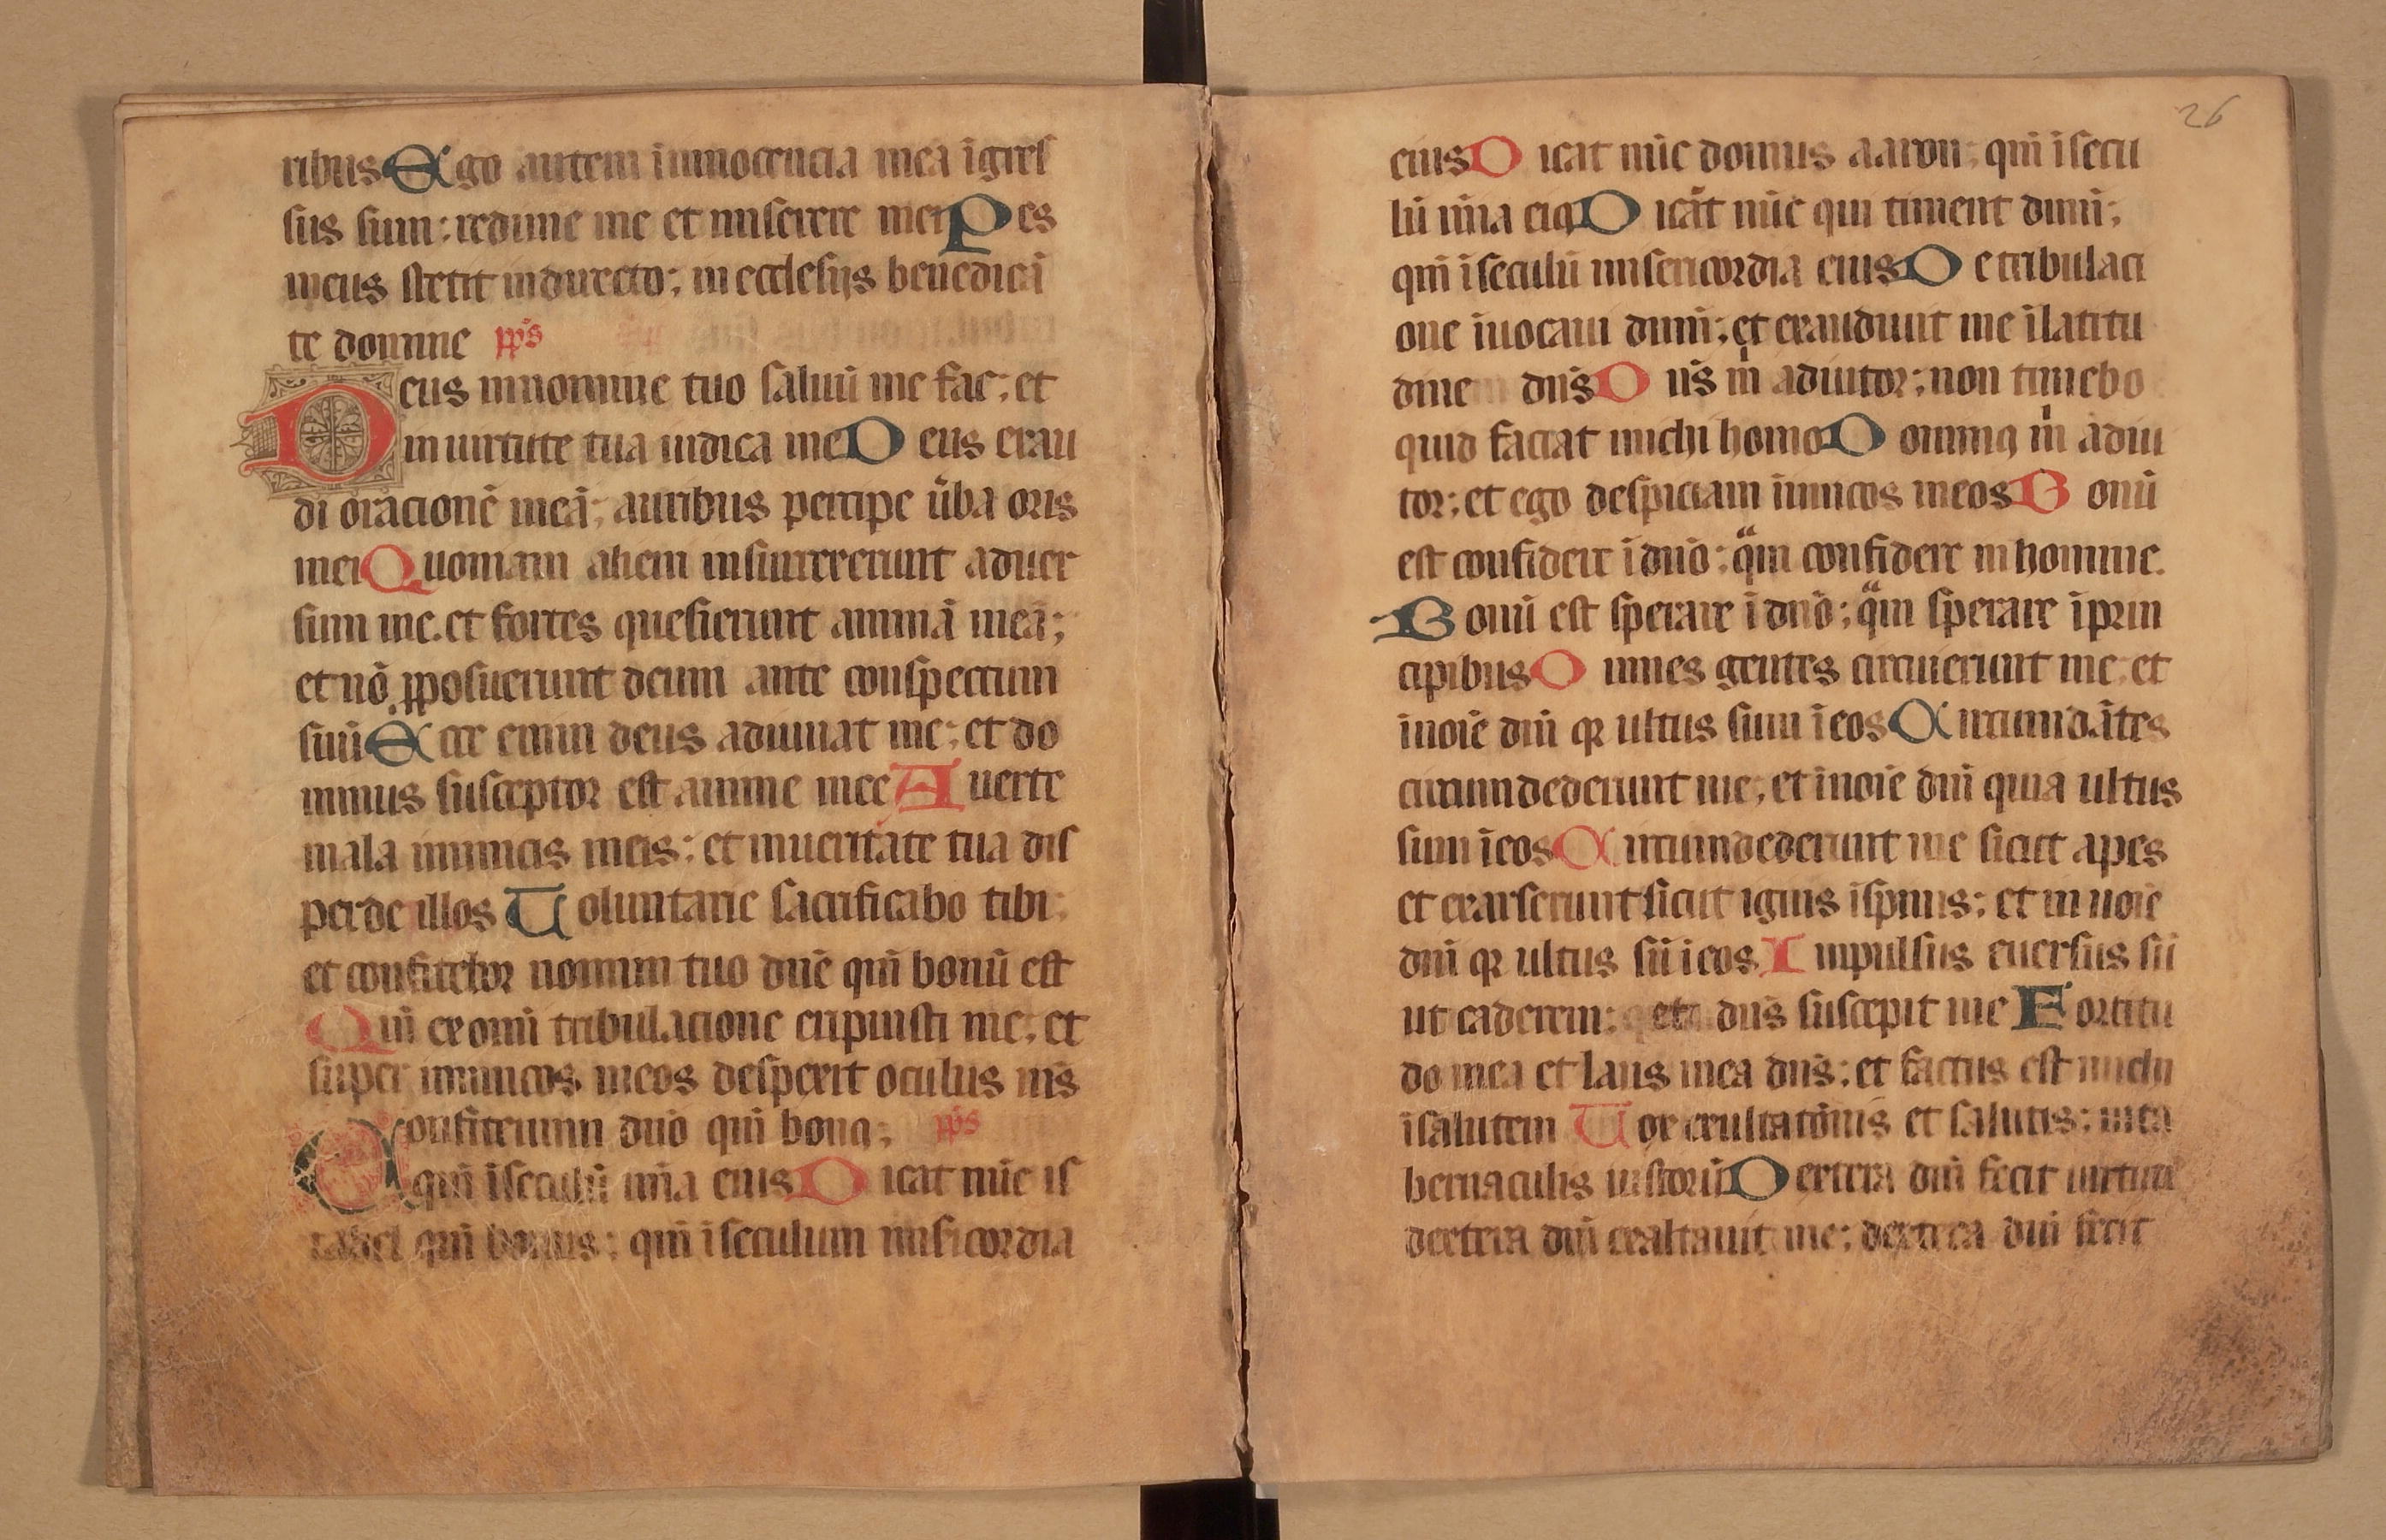 ribus Ego autem innocencia mea īgres
sus sum: redime me et miserere mei Pes
meus stetit in directo; in ecclesijs benedicā
te domine pps
Deus in nomine tuo saluū me fac; et
in uirtute tua iudica me Deus exau
di oracionē meā; auribus percipe ūba oris
mei Quoniam alieni insurrexerunt aduer
sum me. et fortes quesierunt animā meā;
et nō pposuerunt deum ante conspectum
suū Ecce enim deus adiuuat me; et do
minus susceptor est anime mee Auerte
mala inimicis meis; et in ueritate tua dis
perde illos Uoluntarie sacrificabo tibi;
et confitebor nomini tuo dn̄e qm̄ bonū est
Qm̄ ex omni tribulacione eripuisti me; et
super inimicos meos despexit oculus m̄s
Confitemini dn̄o qm̄ bonꝯ; pps
qm̄ ī seculū mīa eius Dicat nūc is
rahel qm̄ bonus; qm̄ ī seculum misicordia
26
eius Dicat nūc domus aaron; qm̄ ī secu
lū mīa eiꝯ Dicāt nūc qui timent dnm̄;
qm̄ ī seculū misericordia eius De tribulaci
one īuocaui dnm̄; et exaudiuit me ī latitu
dine dn̄s Dn̄s m̄ adiutor; non timebo
quid faciat michi homo Dominꝯ m̄ adiu
tor; et ego despiciam īimicos meos Bonū
est confidere ī dn̄o; qᵃm confidere in homine.
Bonū est sperare ī dn̄o; qᵃm sperare ī prin
cipibus Omnes gentes circuierunt me; et
ī noīe dn̄i qꝛ ultus sum ī eos Circumdātes
circumdederunt me; et ī noīe dn̄i quia ultus
sum ī eos Circumdederunt me sicut apes
et exarserunt sicut ignis ī spinis; et in noīe
dn̄i qꝛ ultus sū ī eos Impulsus euersus sū
ut caderem; et dn̄s suscepit me Fortitu
do mea et laus mea dn̄s; et factus est michi
ī salutem Uox exultatōnis et salutis; in ta
bernaculis iustorū Dextera dn̄i fecit uirtutē
dextera dn̄i exaltauit me; dextera dn̄i fecit